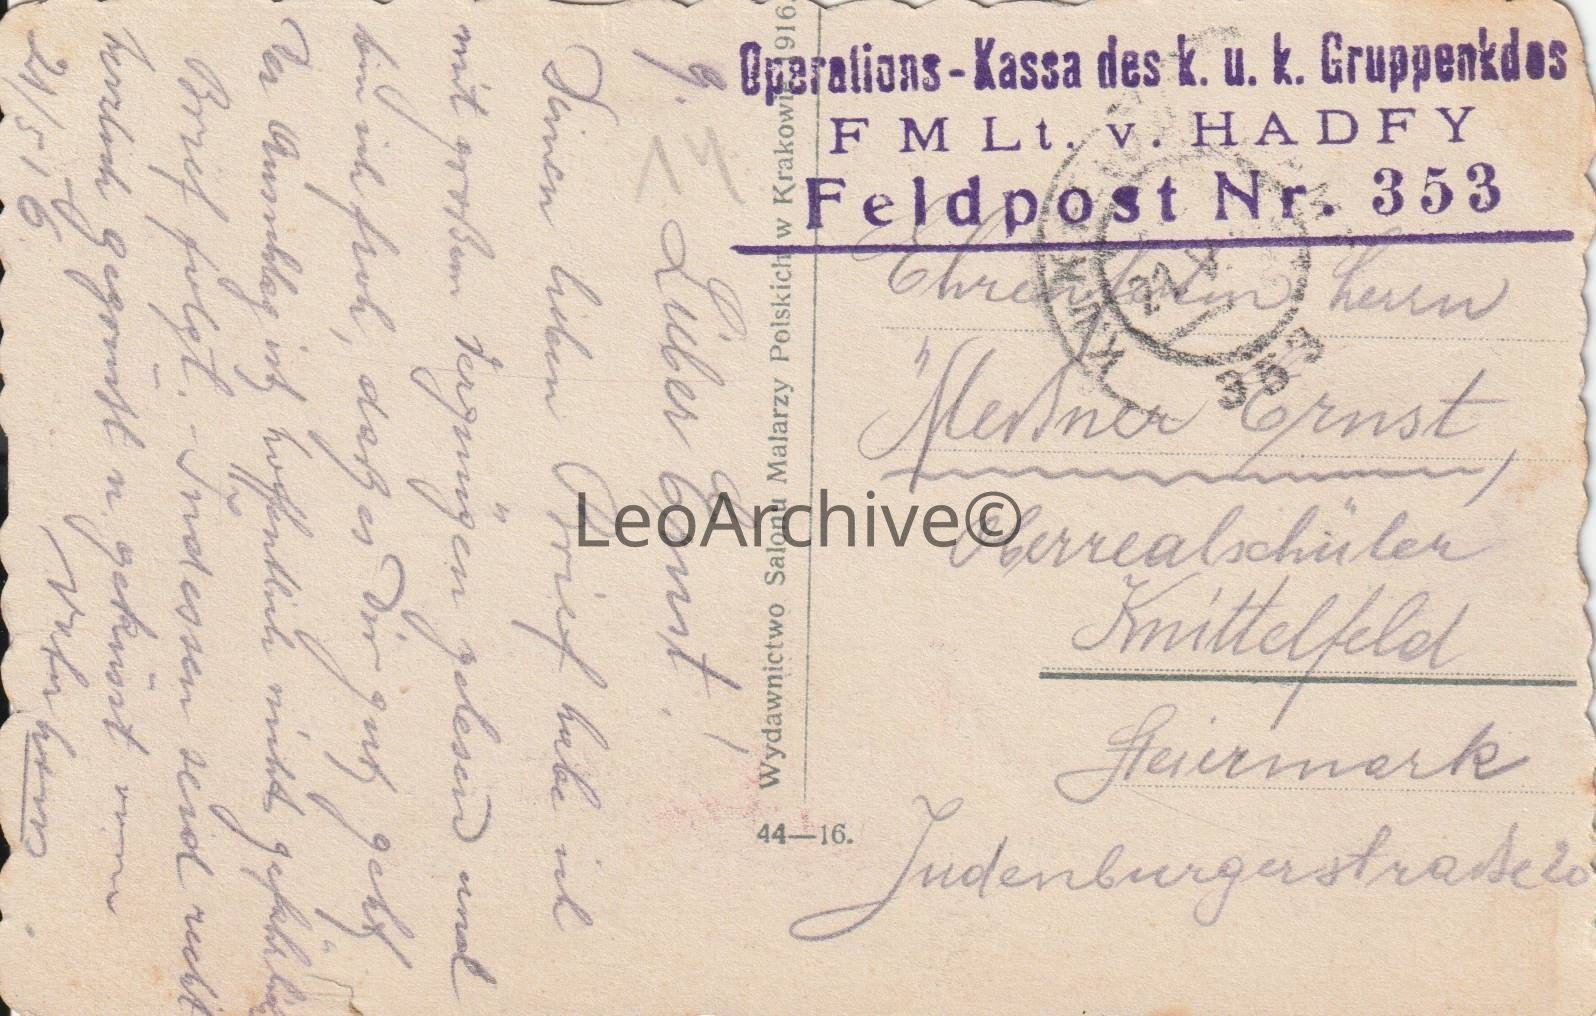 Operations-Kassa des k. u. k. Gruppenkdos
F M Lt. v. HADFY
Feldpost Nr. 353
22 V
353
Herrn
Meßner Ernst,
Oberrealschüler
Knittelfeld
Steiermark
Judenburgerstraße 20
Wydawnictwo Salonu Malarzy Polskich w Krakowie 1916.
44—16.
LeoArchive©
Lieber Ernst!
Deinen lieben Brief habe ich
mit großem Vergnügen gelesen und
bin ich froh, daß es Dir gut geht
Der Ausschlag ist hoffentlich nicht gefährlich
Brief folgt. - Indessen seid recht
herzlich gegrüßt u. geküsst vom
21/5 16